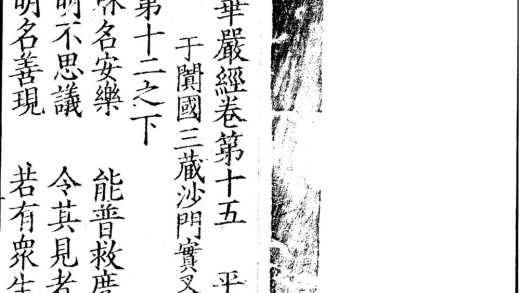 華嚴經卷第十五 平
于闐國三藏沙門實叉
第十二之下
名安樂 能普救度
明不思議 令其見者
明名善現 若有眾生